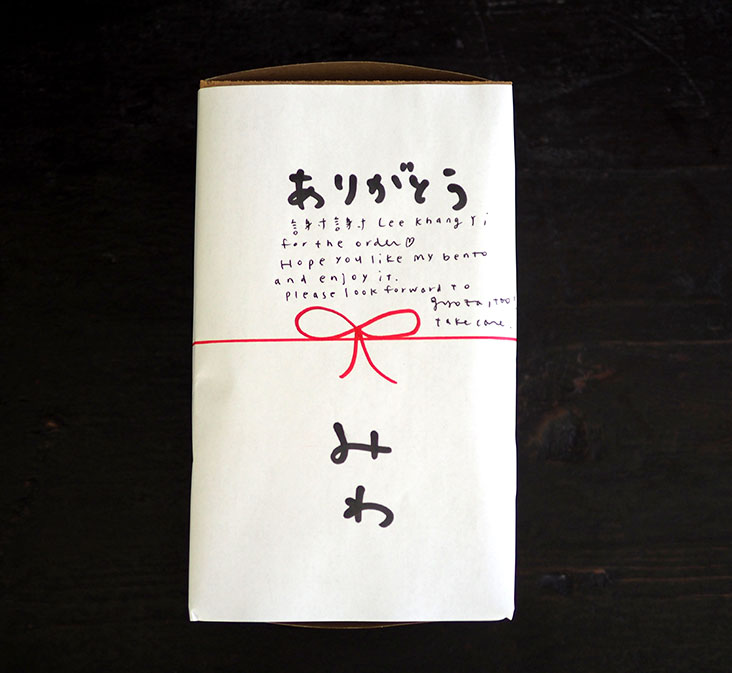 ありがとう
謝謝 Lee Khang Yi
for the order♡
Hope you like my bento
and enjoy it.
Please look forward to
gyoza, too!
take care.
みわ